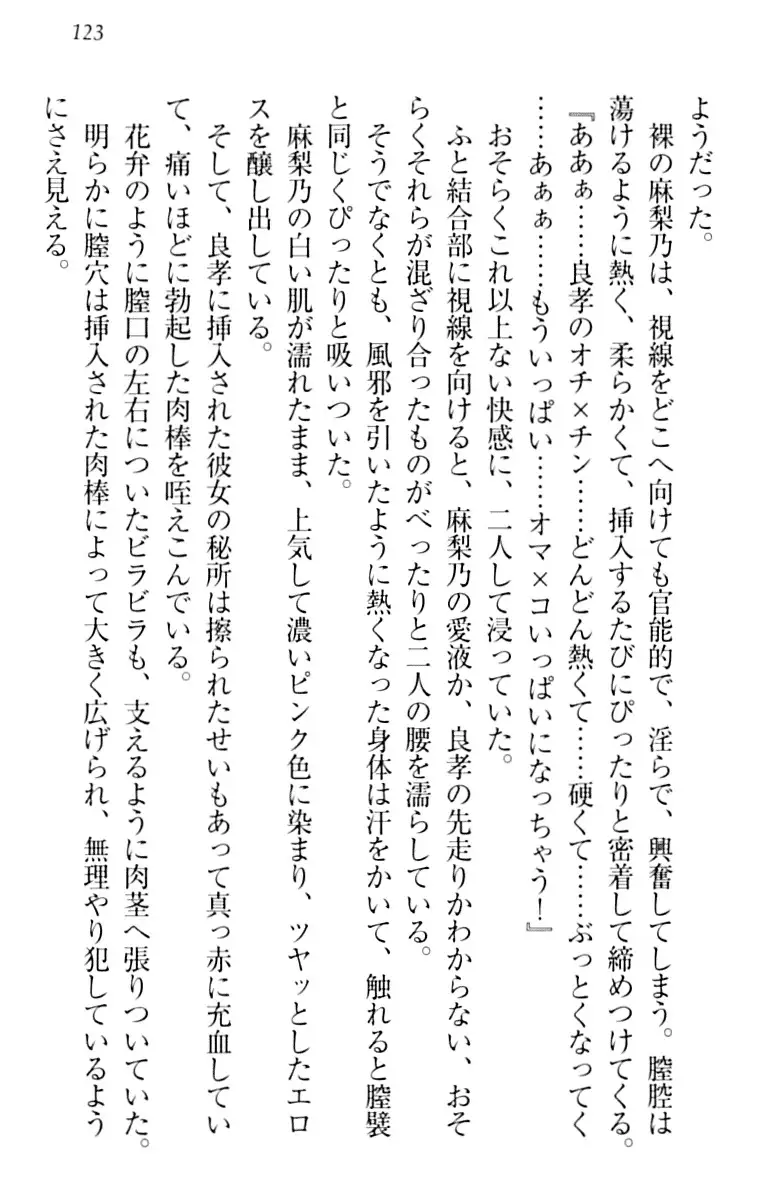 123
ようだった。
　裸の麻梨乃は、視線をどこへ向けても官能的で、淫らで、興奮してしまう。膣腔は
蕩けるように熱く、柔らかくて、挿入するたびにぴったりと密着して締めつけてくる。
『ああぁ……良孝のオチ×チン……どんどん熱くて……硬くて……ぶっとくなってく
……あぁぁ……もういっぱい……オマ×コいっぱいになっちゃう！』
　おそらくこれ以上ない快感に、二人して浸っていた。
　ふと結合部に視線を向けると、麻梨乃の愛液か、良孝の先走りかわからない、おそ
らくそれらが混ざり合ったものがべったりと二人の腰を濡らしている。
　そうでなくとも、風邪を引いたように熱くなった身体は汗をかいて、触れると膣襞
と同じくぴったりと吸いついた。
　麻梨乃の白い肌が濡れたまま、上気して濃いピンク色に染まり、ツヤッとしたエロ
スを醸し出している。
　そして、良孝に挿入された彼女の秘所は擦られたせいもあって真っ赤に充血してい
て、痛いほどに勃起した肉棒を咥えこんでいる。
　花弁のように膣口の左右についたビラビラも、支えるように肉茎へ張りついていた。
　明らかに膣穴は挿入された肉棒によって大きく広げられ、無理やり犯しているよう
にさえ見える。